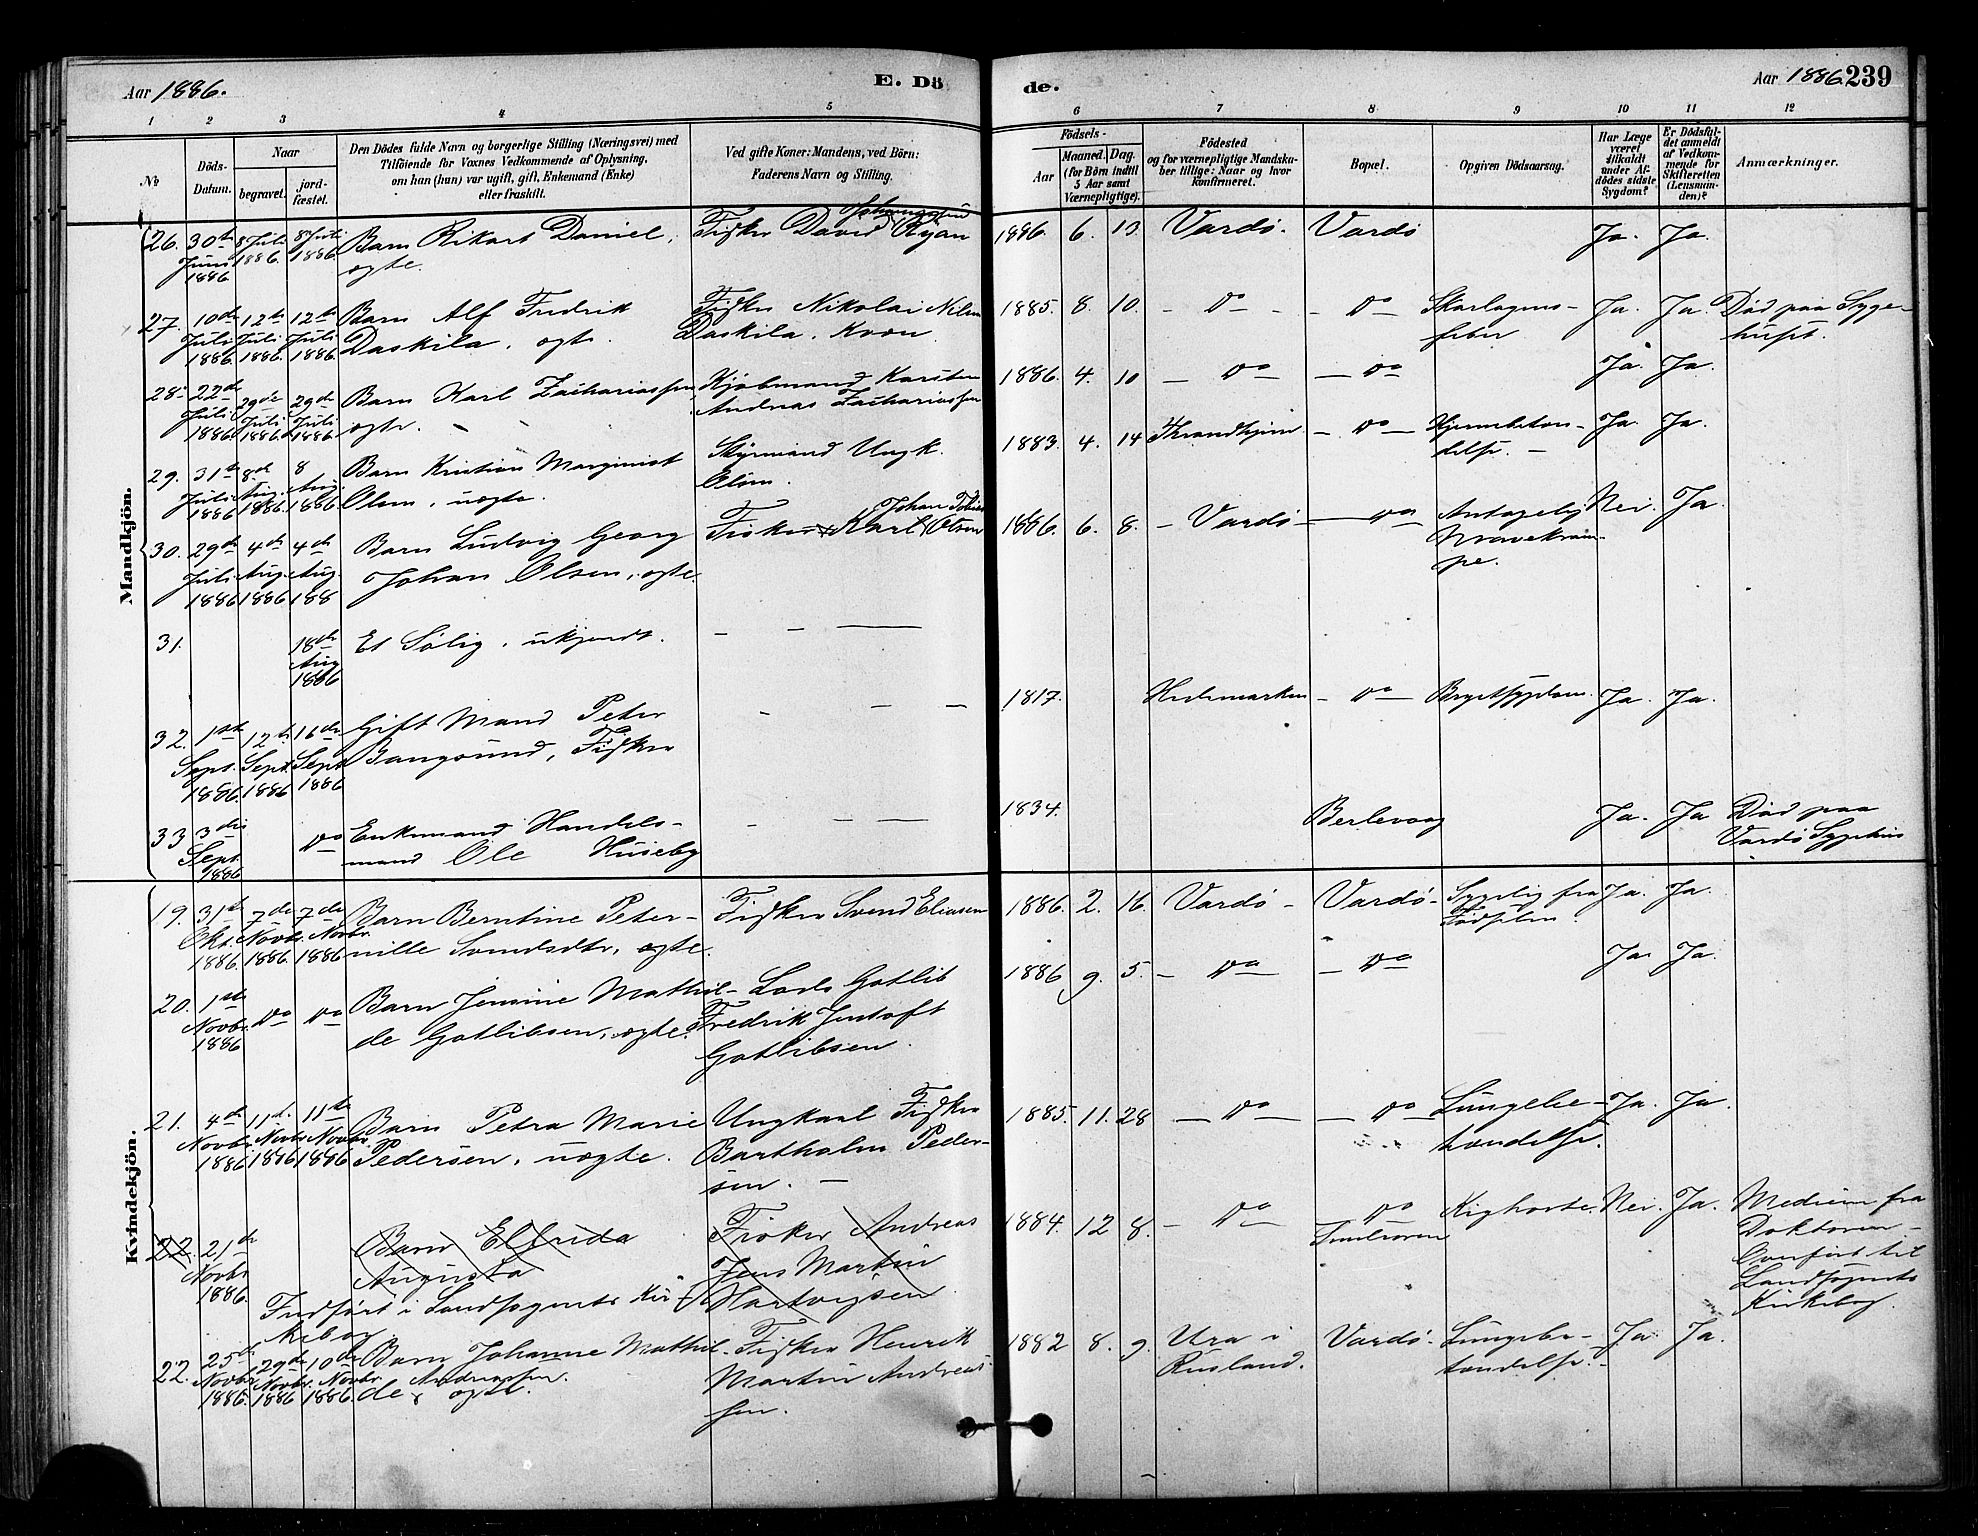 Aar 1886.
E. Dö
de.
Aar 1886. 239
1 2 3 4 5 6 7 8 9 10 11 12
No
Döds-
Datum.
Naar
begravet.
jord-
fæstet.
Den Dödes fulde Navn og borgerlige Stilling (Næringsvei) med
Tilföiende for Voxnes Vedkommende af Oplysning,
om han (hun) var ugift, gift, Enkemand (Enke)
eller fraskilt.
Ved gifte Koner: Mandens, ved Börn:
Faderens Navn og Stilling.
Födsels-
Aar
Maaned. Dag.
(for Börn indtil
5 Aar samt
Værnepligtige).
Födested
og for værnepligtige Mandska-
ber tillige: Naar og hvor
konfirmeret.
Bopæl.
Opgiven Dödsaarsag.
Har Læge
været
tilkaldt
under Af-
dödes sidste
Sygdom?
Er Dödsfal-
det anmeldt
af Vedkom-
mende for
Skifteretten
(Lensman-
den)?
Anmærkninger.
Mandkjön.
26. 30te Juni 1886 8 Juli 1886. 8 Juli 1886.
Barn Rikart Daniel,
ægte.
Fisker David Ryan
1886. 6. 13. Vardö. Vardö Ja. Ja.
27. 10de Juli 1886 12te Juli 1886. 12te Juli 1886.
Barn Alf Fredrik
Daskila, ægte.
Fisker Nikolai Nilsen
Daskila, Kvæn
1885. 8. 10. – Do – – Do Skarlagens-
feber Ja. Ja. Död paa Syge-
huset.
28. 22de Juli 1886 29de Juli 1886. 29de Juli 1886
Barn Karl Zachariassen,
ægte.
Kjöbmand Karsten
Andreas Zachariassen
1886. 4. 10 – Do – – Do Ja. Ja.
29. 31te Juli 1886 8de Aug. 1886. 8 Aug. 1886
Barn Kristian Marginius
Olsen, uægte.
Styrmand Ungk.
Olsen.
1883. 4. 14 Throndhjem – Do – Hjernebetæn-
delse. – Ja. Ja.
30. 29de Juli 1886 4de Aug. 1886 4de Aug. 188
Barn Ludvig Georg
Johan Olsen, ægte.
Johan Tobias
Fisker Karl Olsen
1886. 6. 8. – Vardö – Do Antagelig
Mavekram-
pe. Nei. Ja.
31. 18de Aug 1886
Et Sölig, ukjendt. – – –
32. 1ste Sept. 1886. 12te Sept. 1886 16de Sept 1886
Gift Mand Peter
Bangsund, Fisker
– – –
1817. Hedemarken – Do – Brystsygdom Ja. Ja.
33 3die Sept. 1886 Do
Enkemand Handels-
mand Ole Huseby
– – –
1834. Berlevaag Ja. Ja Död paa
Vardö Sygehus
Kvindekjön.
19. 31te Okt. 1886. 7de Novbr. 1886. 7de Novbr. 1886
Barn Berntine Peter-
nille Svendsdtr, ægte.
Fisker Svend Eliasen
1886. 2. 16. Vardö – Vardö – Sygelig fra
Födselen. Ja. Ja.
20. 1ste Novbr. 1886 Do Do
Barn Jensine Mathil-
de Gotlibsen, ægte.
Lods Gotlib
Fredrik Jentoft
Gotlibsen.
1886 9. 5. – Do – – Do Ja. Ja.
21. 4de Novbr. 1886 11te Novbr. 1886 11te Novbr. 1886
Barn Petra Marie
Pedersen, uægte.
Ungkarl Fisker
Bartholm Peder-
sen. –
1885. 11. 28 – Do – – Do Lungebe-
tændelse. Ja. Ja.
22. 21de Novbr. 1886.
Barn Elfrida
Augusta
Indfört i Landsognets Kir-
kebog
Fisker Andreas
Jens Martin
Hartvigsen.
1884. 12 8. – Do – Do
Smelroren Kighoste. Nei. Ja. Medicin fra
Doktoren –
Overfört til
Landsognets
Kirkebog.
22. 25de Novbr. 1886. 29de Novbr. 1886 10de Novbr. 1886.
Barn Johanne Mathil-
de Andreassen, ægte.
Fisker Henrik
Martin Andreas-
sen.
1882 8. 9. Ura i
Rusland. Vardö. Lungebe-
tændelse. Ja. Ja.